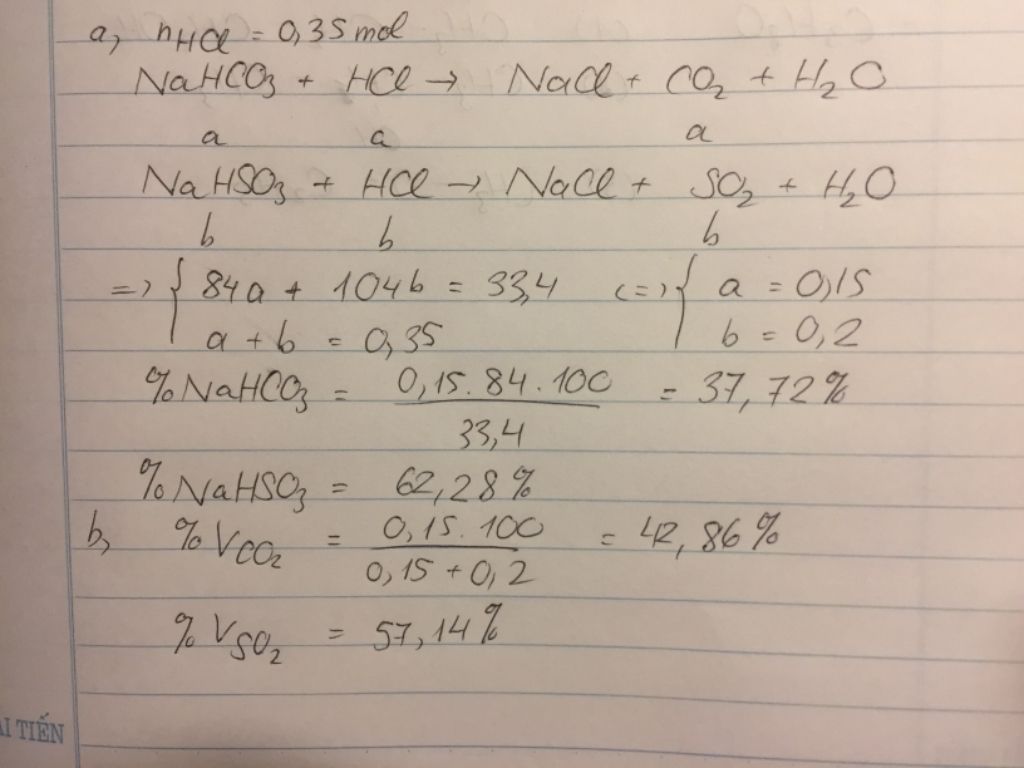 a, nHCl = 0,35 mol
NaHCO₃ + HCl → NaCl + CO₂ + H₂O
a a a
NaHSO₃ + HCl → NaCl + SO₂ + H₂O
b b b
=> { 84a + 104b = 33,4 <=> { a = 0,15
a + b = 0,35 b = 0,2
%NaHCO₃ = 0,15.84.100 / 33,4 = 37,72%
%NaHSO₃ = 62,28%
b, %VCO₂ = 0,15.100 / 0,15+0,2 = 42,86%
%VSO₂ = 57,14%
ẢI TIẾN